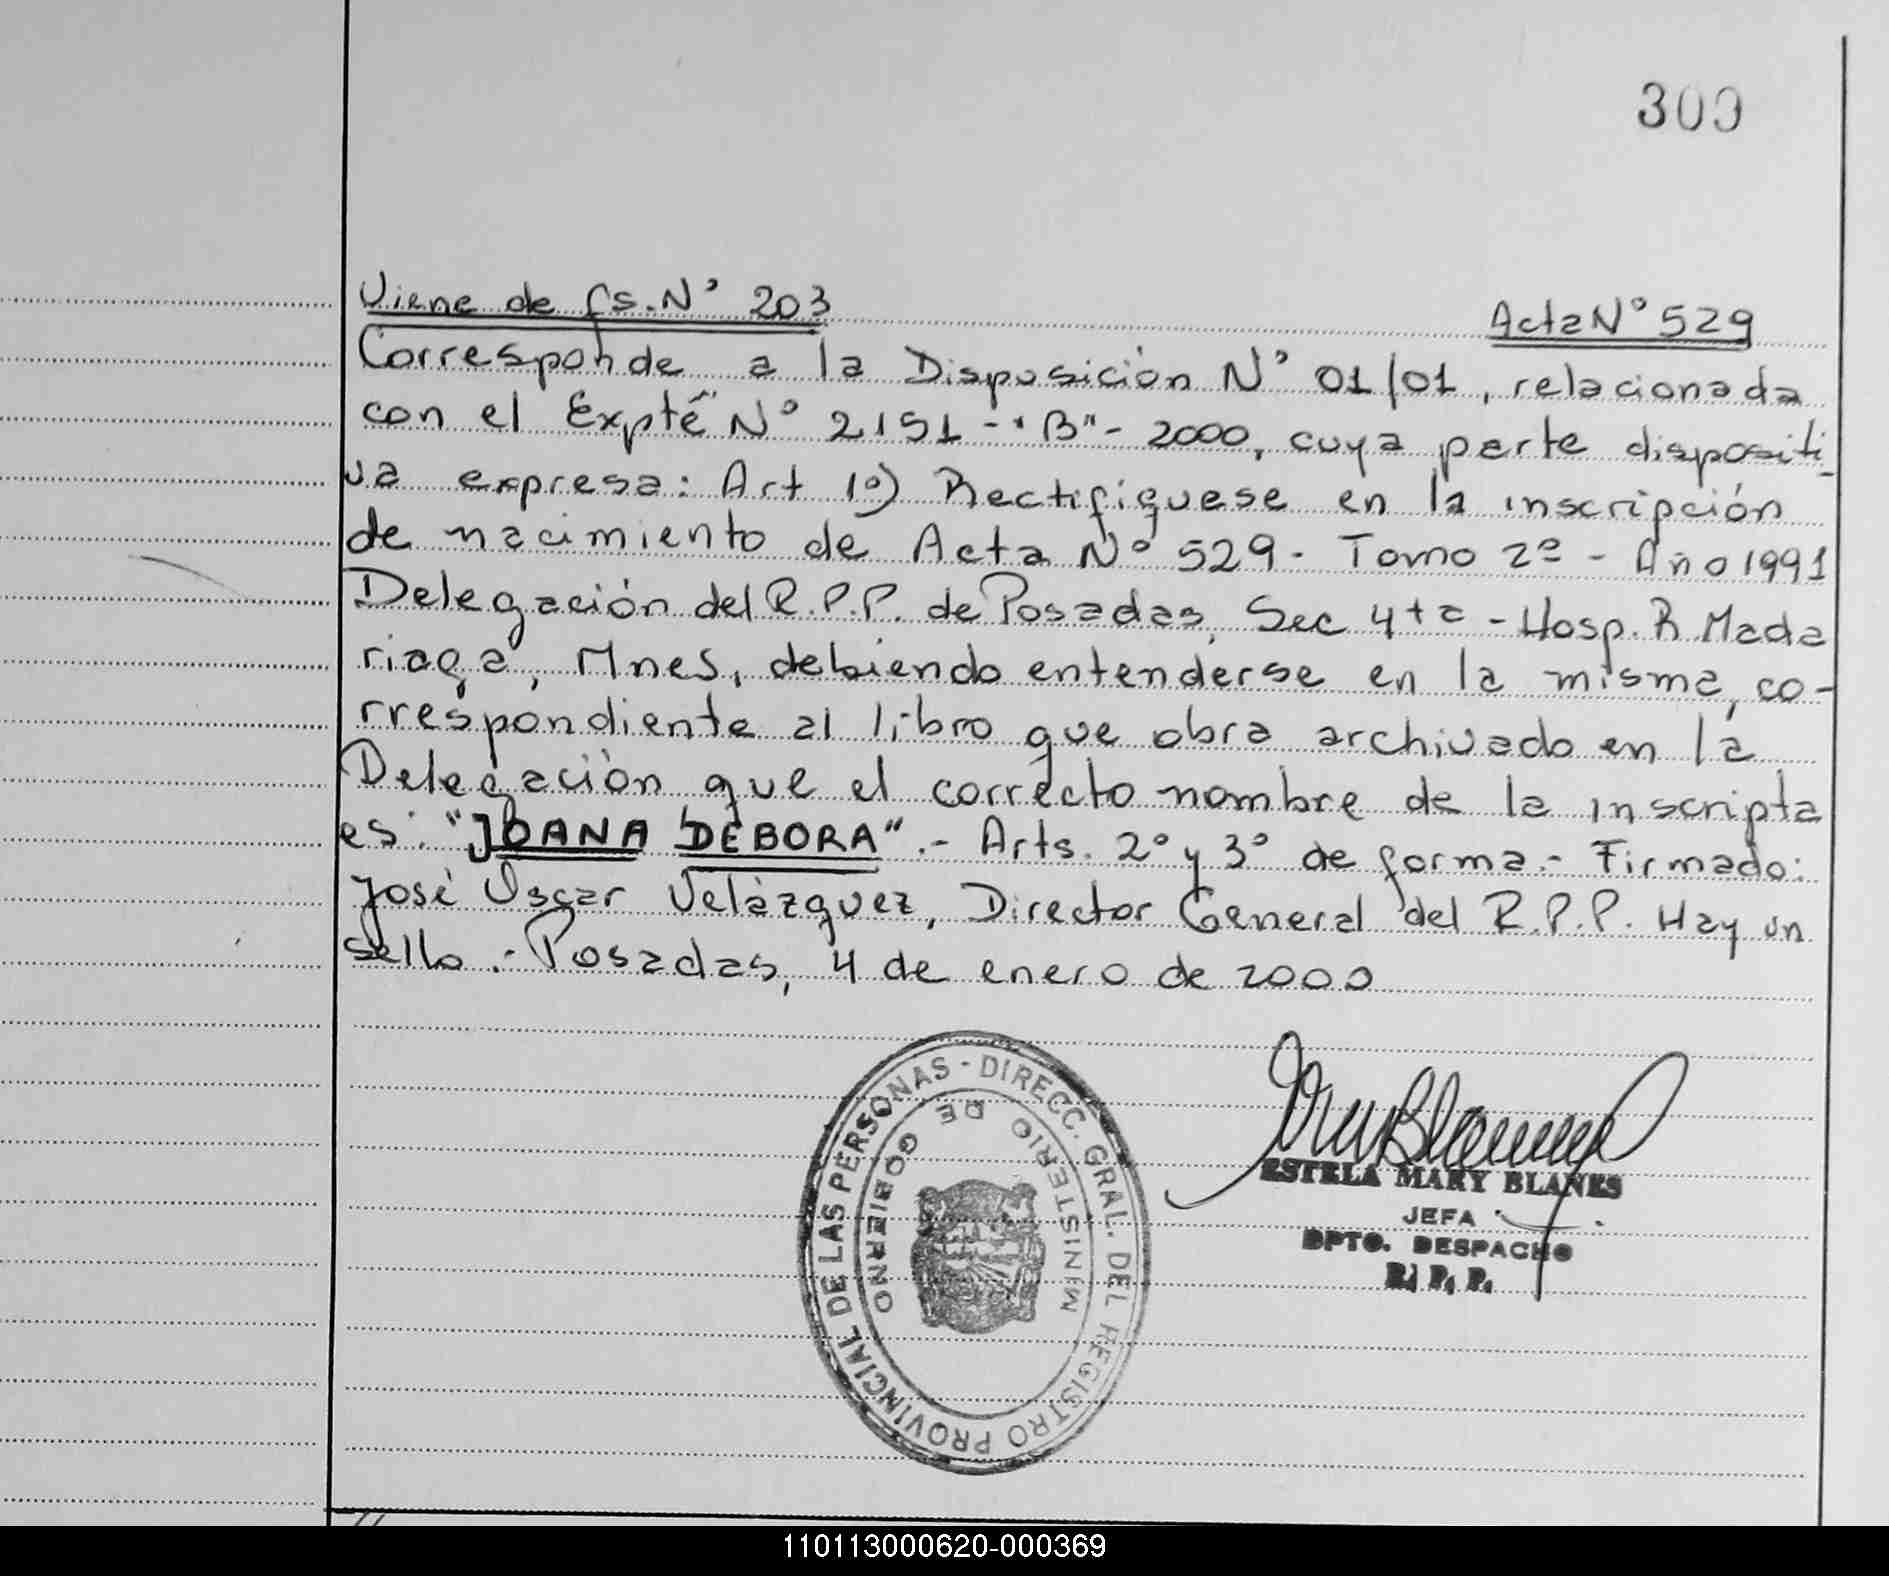 300
Viene de fs. N° 203
Acta N° 529
Corresponde a la Disposición N° 01/01, relacionada
con el Expte N° 2151-"B"- 2000, cuya parte dispositi
va expresa: Art 1º) Rectifiquese en la inscripción
de nacimiento de Acta Nº 529- Tomo 2º - Año 1991
Delegación del R.P.P. de Posadas, Sec 4ta - Hosp. R. Mada
riaga, Mnes, debiendo entenderse en la misma, co-
rrespondiente al libro que obra archivado en la
Delegación que el correcto nombre de la inscripta
es: "JOANA DEBORA".- Arts. 2° y 3° de forma.- Firmado:
José Oscar Velázquez, Director General del R.P.P. Hay un
sello.- Posadas, 4 de enero de 2000
DIRECC. GRAL. DEL REGISTRO PROVINCIAL DE LAS PERSONAS -
MINISTERIO DE GOBIERNO
ESTELA MARY BLANES
JEFA
DPTO. DESPACHO
R. P. P.
110113000620-000369